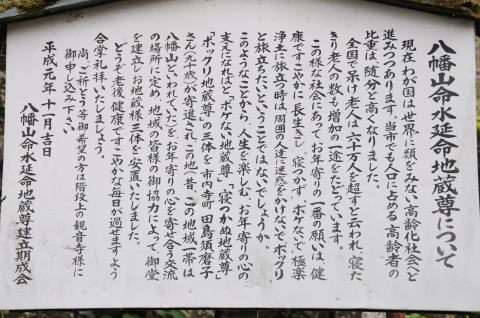 八幡山命水延命地蔵尊について
現在わが国は世界に類をみない高齢化社会へと
進みつつあります。当市でも人口に占める高齢者の
比重は、随分と高くなりました。
全国で呆け老人は六十万人を超すと云われ、寝た
きり老人の数も増加の一途をたどっています。
この様な社会にあってお年寄りの一番の願いは、健
康ですこやかに長生きし、寝つかず、ボケないで、極楽
浄土に旅立つ時は、周囲の人達に迷惑をかけないで、ポックリ
と旅立ちたいということではないでしょうか。
このようなことから、人生を楽しむ、お年寄りの心の
支えになればと「ボケない地蔵尊」「寝つかぬ地蔵尊」
「ポックリ地蔵尊」の三体を市内寺町 田島須磨子
さん(九十歳)が寄進され、この地(昔、この地域一帯は
八幡山といわれていた)をお年寄りの心を寄せ合う交流
の場所に定め、地域の皆様の御協力によって、御堂
を建立しお地蔵様三体を安置いたしました。
どうぞ老後、健康ですこやかな毎日が過せますよう
合掌礼拝いたしましょう。
尚、ご祈とう等御希望の方は階段上の観音寺様に
御申し込み下さい。
平成元年十一月吉日
八幡山命水延命地蔵尊建立期成会